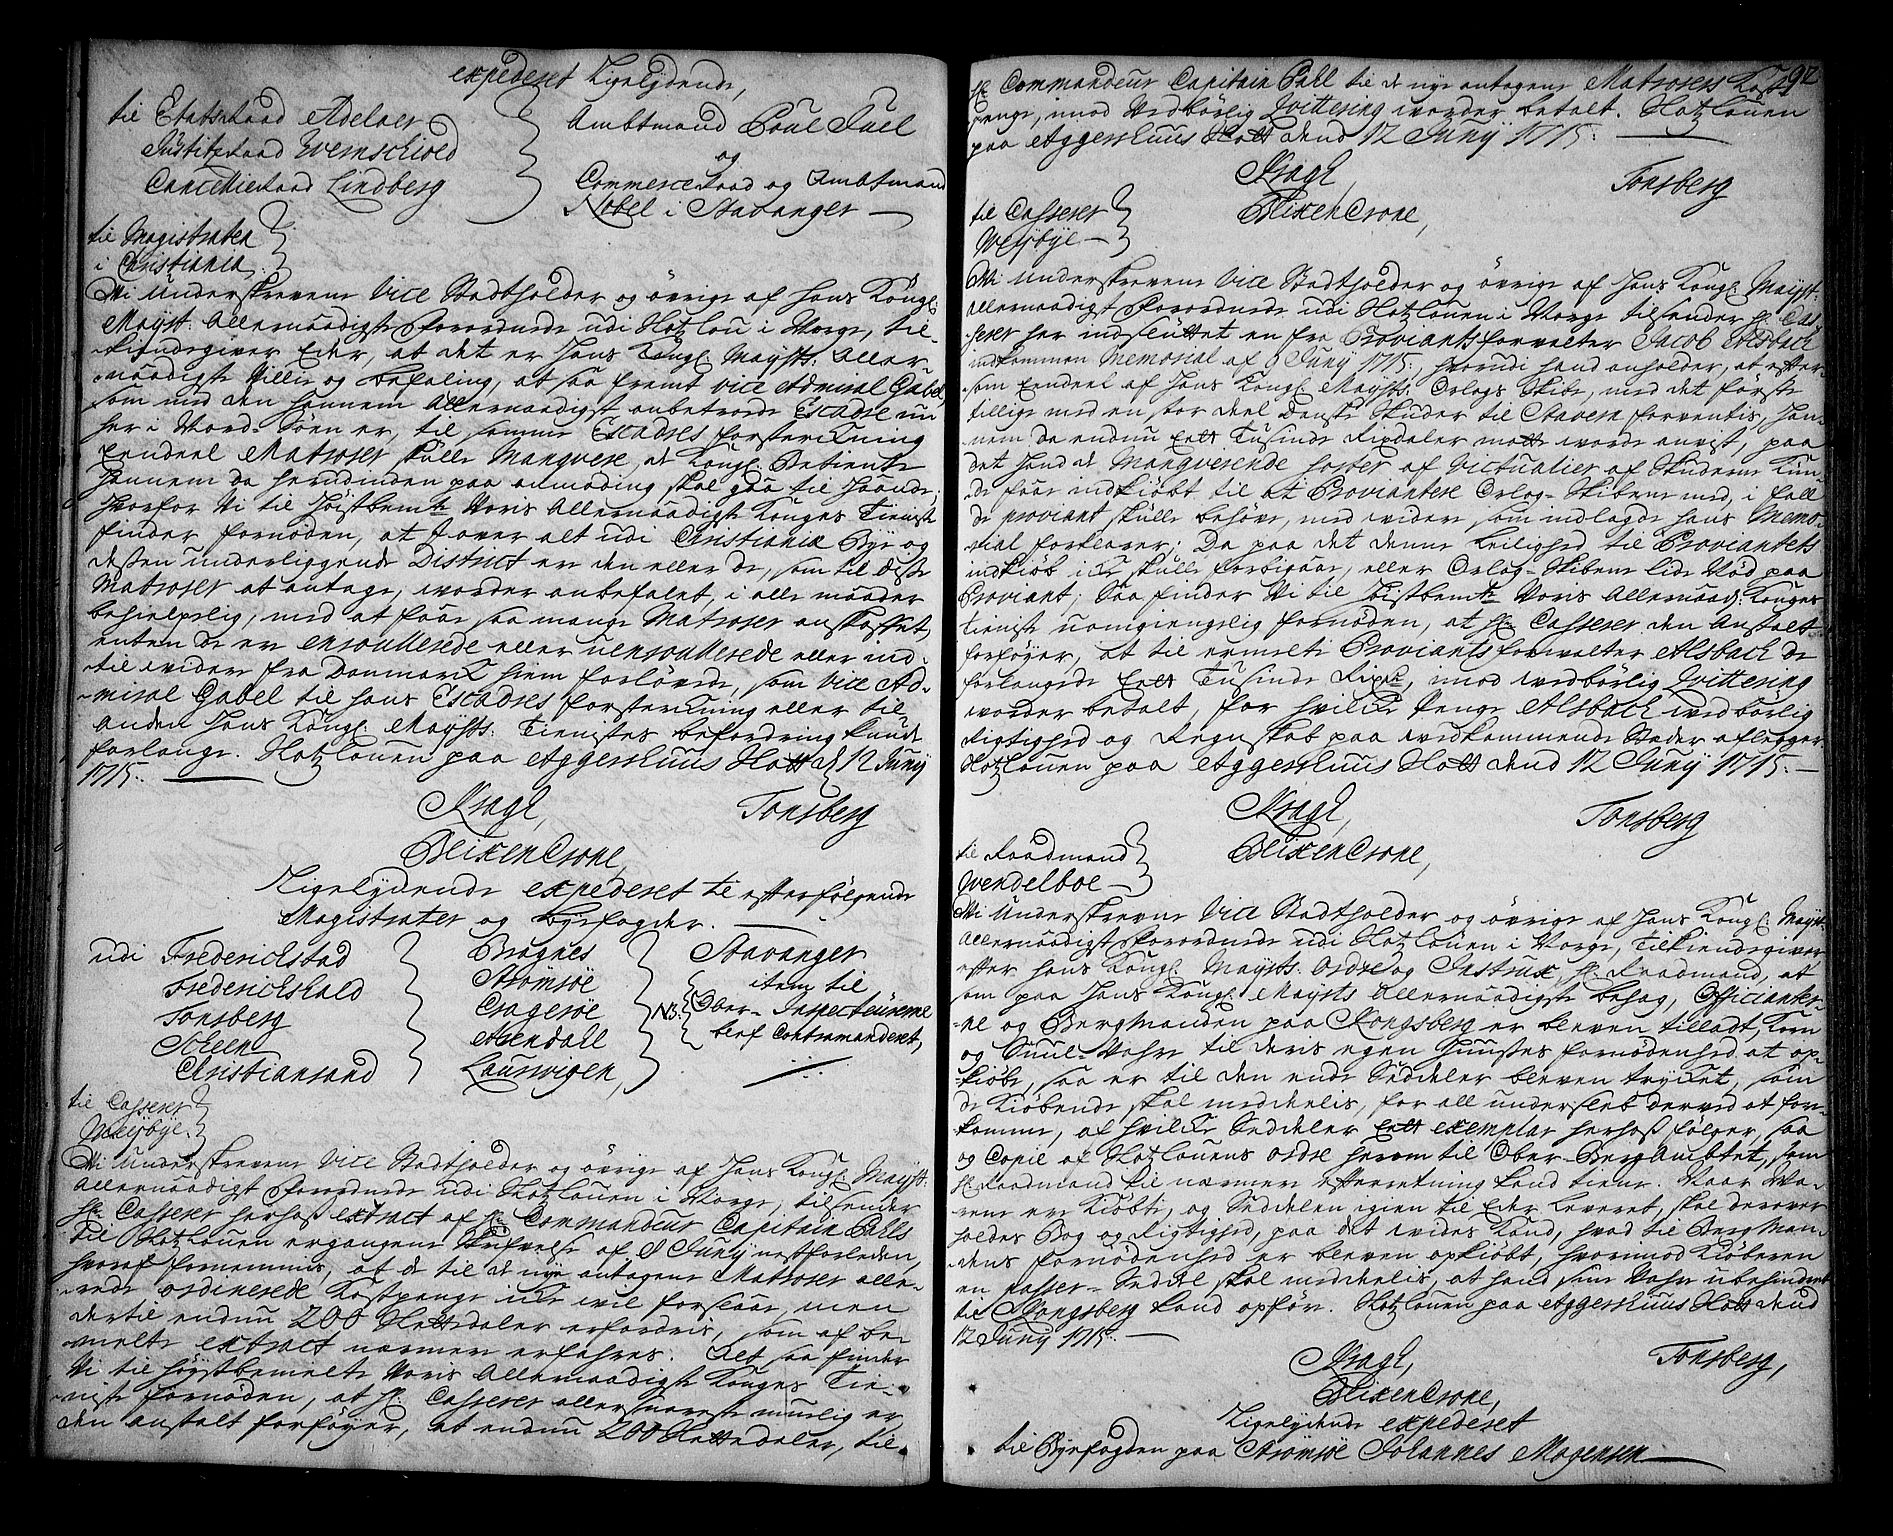 expederet Ligelydende,
til Etatsraad Adelaer
Justitzraad Wernschiold
Cancellieraad Lindberg
Ambtmand Poul Juel
og
Commerce Raad og Ambtmand
Nobel i Stavanger
til Magistraten
i Christiania
Wi Underskrevene Vice Stadtholder og övrige af Hans Kongl:
Mayst: Allernaadigste Forordnede udi Slotzlou i Norge, til-
kiendegiver Eder, at det er Hans Kongl: Maysts: Aller-
naadigste Villie og befaling, at saa fremt Vice Admiral Gabel,
som med den hannem Allernaadigst anbetroede Escadre nu
her i Nord-Söen er, til samme Escadres forsterckning
Eendeel Matroser skulle Manqvere, at Kongl: Betiente
hannem da herudinden paa anmoding skal gaa til Haande;
Hvorfor Vi til Höistbemte Voris Allernaadigste Konges Tieniste
finder fornöden, at I over alt udi Christiania Bye og
dessen underliggende District er den eller de, som til disse
Matroser at antage, worder anbefalet, i alle maader
behielpelig, med at faae saa mange Matroser anskaffet,
enten de er enroullerede eller uenroullerede eller ind-
til videre fra Danmarck hiem forlövede, som Vice Ad-
miral Gabel til hans Escadres forsterckning eller til
anden Hans Kongl: Maysts: Tienistes befordring kunde
forlange. Slotzlouen paa Aggershuus Slott d 12 Junij
1715.
Kragh, Tonsberg
BlixenCrone,
Ligelydende expederet til efterfölgende
Magistrater og byefogder.
udi Frederichstad
Frederichshald
Tonsberg
Scheen
Christiansand
Bragnes
Strömsöe
Crageröe
Arendall
Laurwigen,
Stavanger
item til
NB. Ober-Inspecteurerne
blef Contramanderet,
til Casserer
Weybye.
Wi Underskrevene Vice Stadtholder og övrige af Hans Kongl: Mayst:
Allernaadigst Forordnede udi Slotzlouen i Norge, tilsender
Hr. Casserer herhoß extract af Hr. Commandeur Capitain Palls
til Slotzlouen ergangene Skrifvelse af 8 Junij nestforleden,
hvoraf fornemmes, at de til de nye antagene Matroser alle-
rede ordinerede Kostpenge icke vil forslaae, men
dertil endnu 200 Slettedaler erfordris, som af be-
melte extract nærmere erfahres. Alt saa finder
Vi til Höystbemelte Voris Allernaadigste Konges Tie-
niste fornöden, at Hr. Casserer allersnareste muelig er,
den anstalt forföyer, at endnu 200 Slettedaler, til
92
Hr. Commandeur Capitain Pall til de nye antagene Matrosers Kost-
penge, imod Vedbörlig Qvittering worder betalt. Slotzlouen
paa Aggershuus Slott dend 12 Junij 1715.
Kragh, Tonsberg
BlixenCrone,
til Casserer
Weybye
Wi Underskrevene Vice Stadtholder og övrige af Hans Kongl: Mayst:
Allernaadigst Forordnede udi Slotzlouen i Norge tilsender Hr. Cas-
serer her indsluttet en fra Proviantsforvalter Jacob Alsbach
indkommen Memorial af 9 Junij 1715, hvorudi hand anholder, at efter-
som Eendeel af Hans Kongl: Maysts: Orlogs Skibe, med det förste
tillige med en stor deel Danske Skuder til Stavern forventis, Han-
nem da endnu Eett Tusinde Rixdaler motte worde anvist, paa
det Hand de Manqverende Sorter af Victualier af Skuderne Kun-
de faae indkiöbt til at Proviantere Orlog-Skibene med, i fall
de proviant skulle behöve, med videre som indlagde hans Memo-
rial forklarer; Da paa det denne leilighed til Proviantets
indkiöb icke skulle forbigaae, eller Orlog-Skibene lide Nöd paa
Proviant; Saa finder Vi til Höistbemte Voris Allernaad: Konges
tieniste uomgiengelig fornöden, at Hr. Casserer den Anstalt
forföyer, at til ermelte Proviantsforvalter Alsbach de
forlangede Eett Tusinde Rixdr, imod vedbörlig Qvittering
worder betalt, for hvilcke Penge Alsbach vedbörlig
Rigtighed og Regnskab paa vedkommende Steder aflegger.
Slotzlouen paa Aggershuus Slott dend 12 Junij 1715.
Kragh, Tonsberg
BlixenCrone,
til Raadmand
Wendelboe
Wi Underskrevne Vice Stadtholder og övrige af Hans Kongl: Mayst:
Allernaadigst Forordnede udi Slotzlouen i Norge, Tilkiendegiver
efter Hans Kongl: Maysts: Ordre og Instrux, Hr. Raadmand, at
som paa Hans Kongl: Maysts Allernaadigste behag, Officianter-
ne og Bergmanden paa Kongsberg er bleven tilladt, Korn
og Smul-Vahre til deris egen Huuses fornödenhed at op-
kiöbe, saa er til den ende Seddeler bleven trycket, som
de Kiöbende skal meddeelis, for all undersleb derved at fore-
komme, af hvilcke Seddeler Eett exemplar herhoß fölger, saa
og Copie af Slotzlouens ordre herom til Ober-BergAmbtet, som
Hr. Raadmand til nærmere efterretning kand tiene. Naar Va-
rene er Kiöbte, og Seddelen igien til Eder Leveret, skal derover
holdes Bog og Rigtighed, paa det vides Kand, hvad til BergMan-
dens fornödenhed er bleven opkiöbt, hvorimod Kiöberen
en Passer-Seddel skal meddeelis, at hand sine Vahre ubehindret
til Kongsberg kand opföre. Slotzlouen paa Aggershuus Slott dend
12 Junij 1715.
Kragh, Tonsberg,
BlixenCrone,
Ligelydende expederet
til Byefogden paa Strömsöe Johannes Mogensen